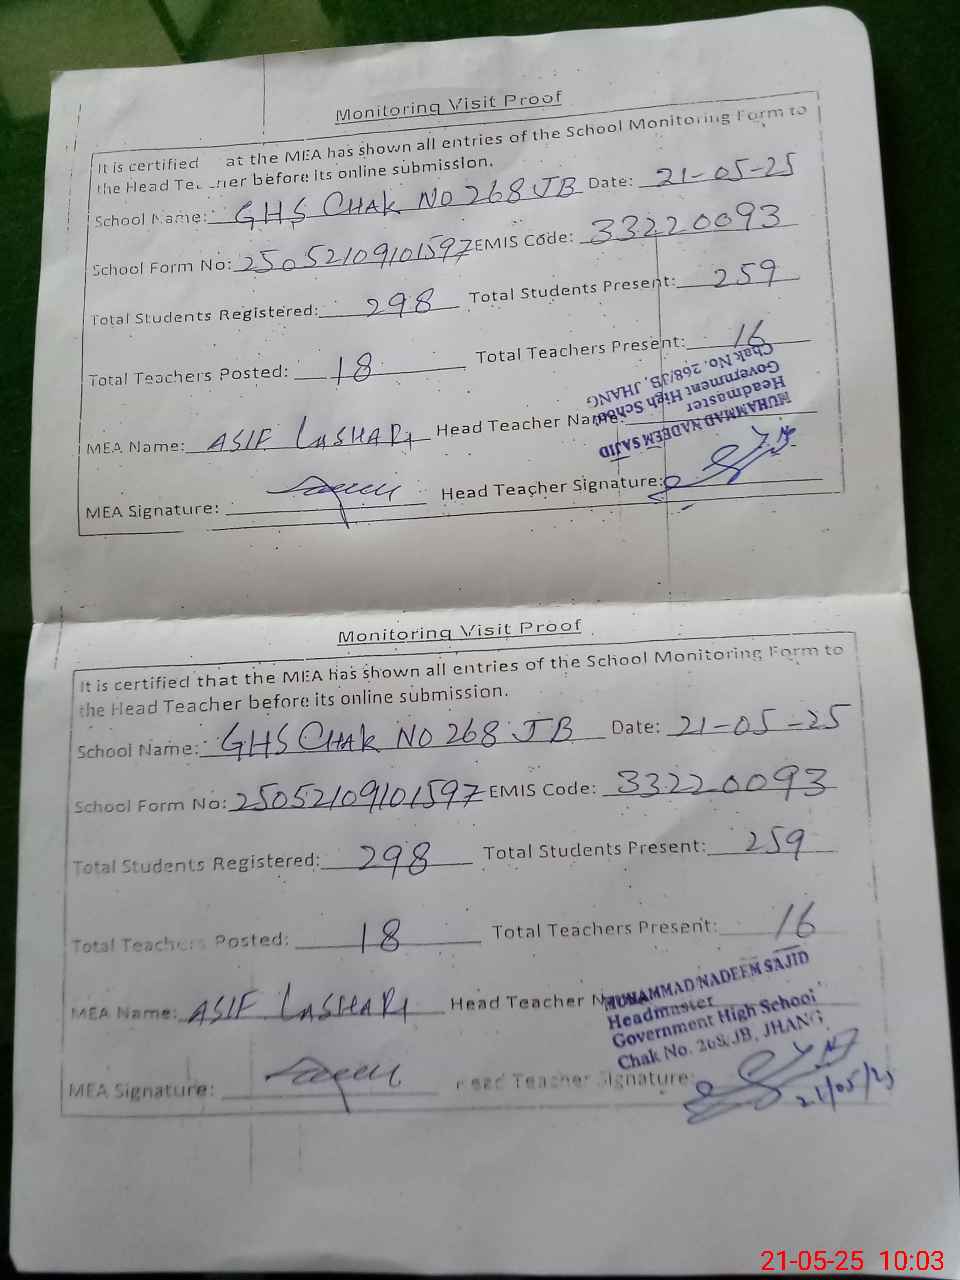 Monitoring Visit Proof
It is certified at the MEA has shown all entries of the School Monitoring Form to
the Head Teacher before its online submission.
School Name: GHS CHAK NO 268 JB Date: 21-05-25
School Form No: 25052109101597 EMIS Code: 33220093
Total Students Registered: 298 Total Students Present: 259
Total Teachers Posted: 18 Total Teachers Present: 16
MEA Name: ASIF LASHARI Head Teacher Name:
MUHAMMAD NADEEM SAJID
Headmaster
Government High School
Chak No. 268/JB, JHANG
MEA Signature: Head Teacher Signature:
Monitoring Visit Proof
It is certified that the MEA has shown all entries of the School Monitoring Form to
the Head Teacher before its online submission.
School Name: GHS CHAK NO 268 JB Date: 21-05-25
School Form No: 25052109101597 EMIS Code: 33220093
Total Students Registered: 298 Total Students Present: 259
Total Teachers Posted: 18 Total Teachers Present: 16
MEA Name: ASIF LASHARI Head Teacher Name:
MUHAMMAD NADEEM SAJID
Headmaster
Government High School
Chak No. 268 JB, JHANG
MEA Signature: Head Teacher Signature:
21/05/25
21-05-25 10:03